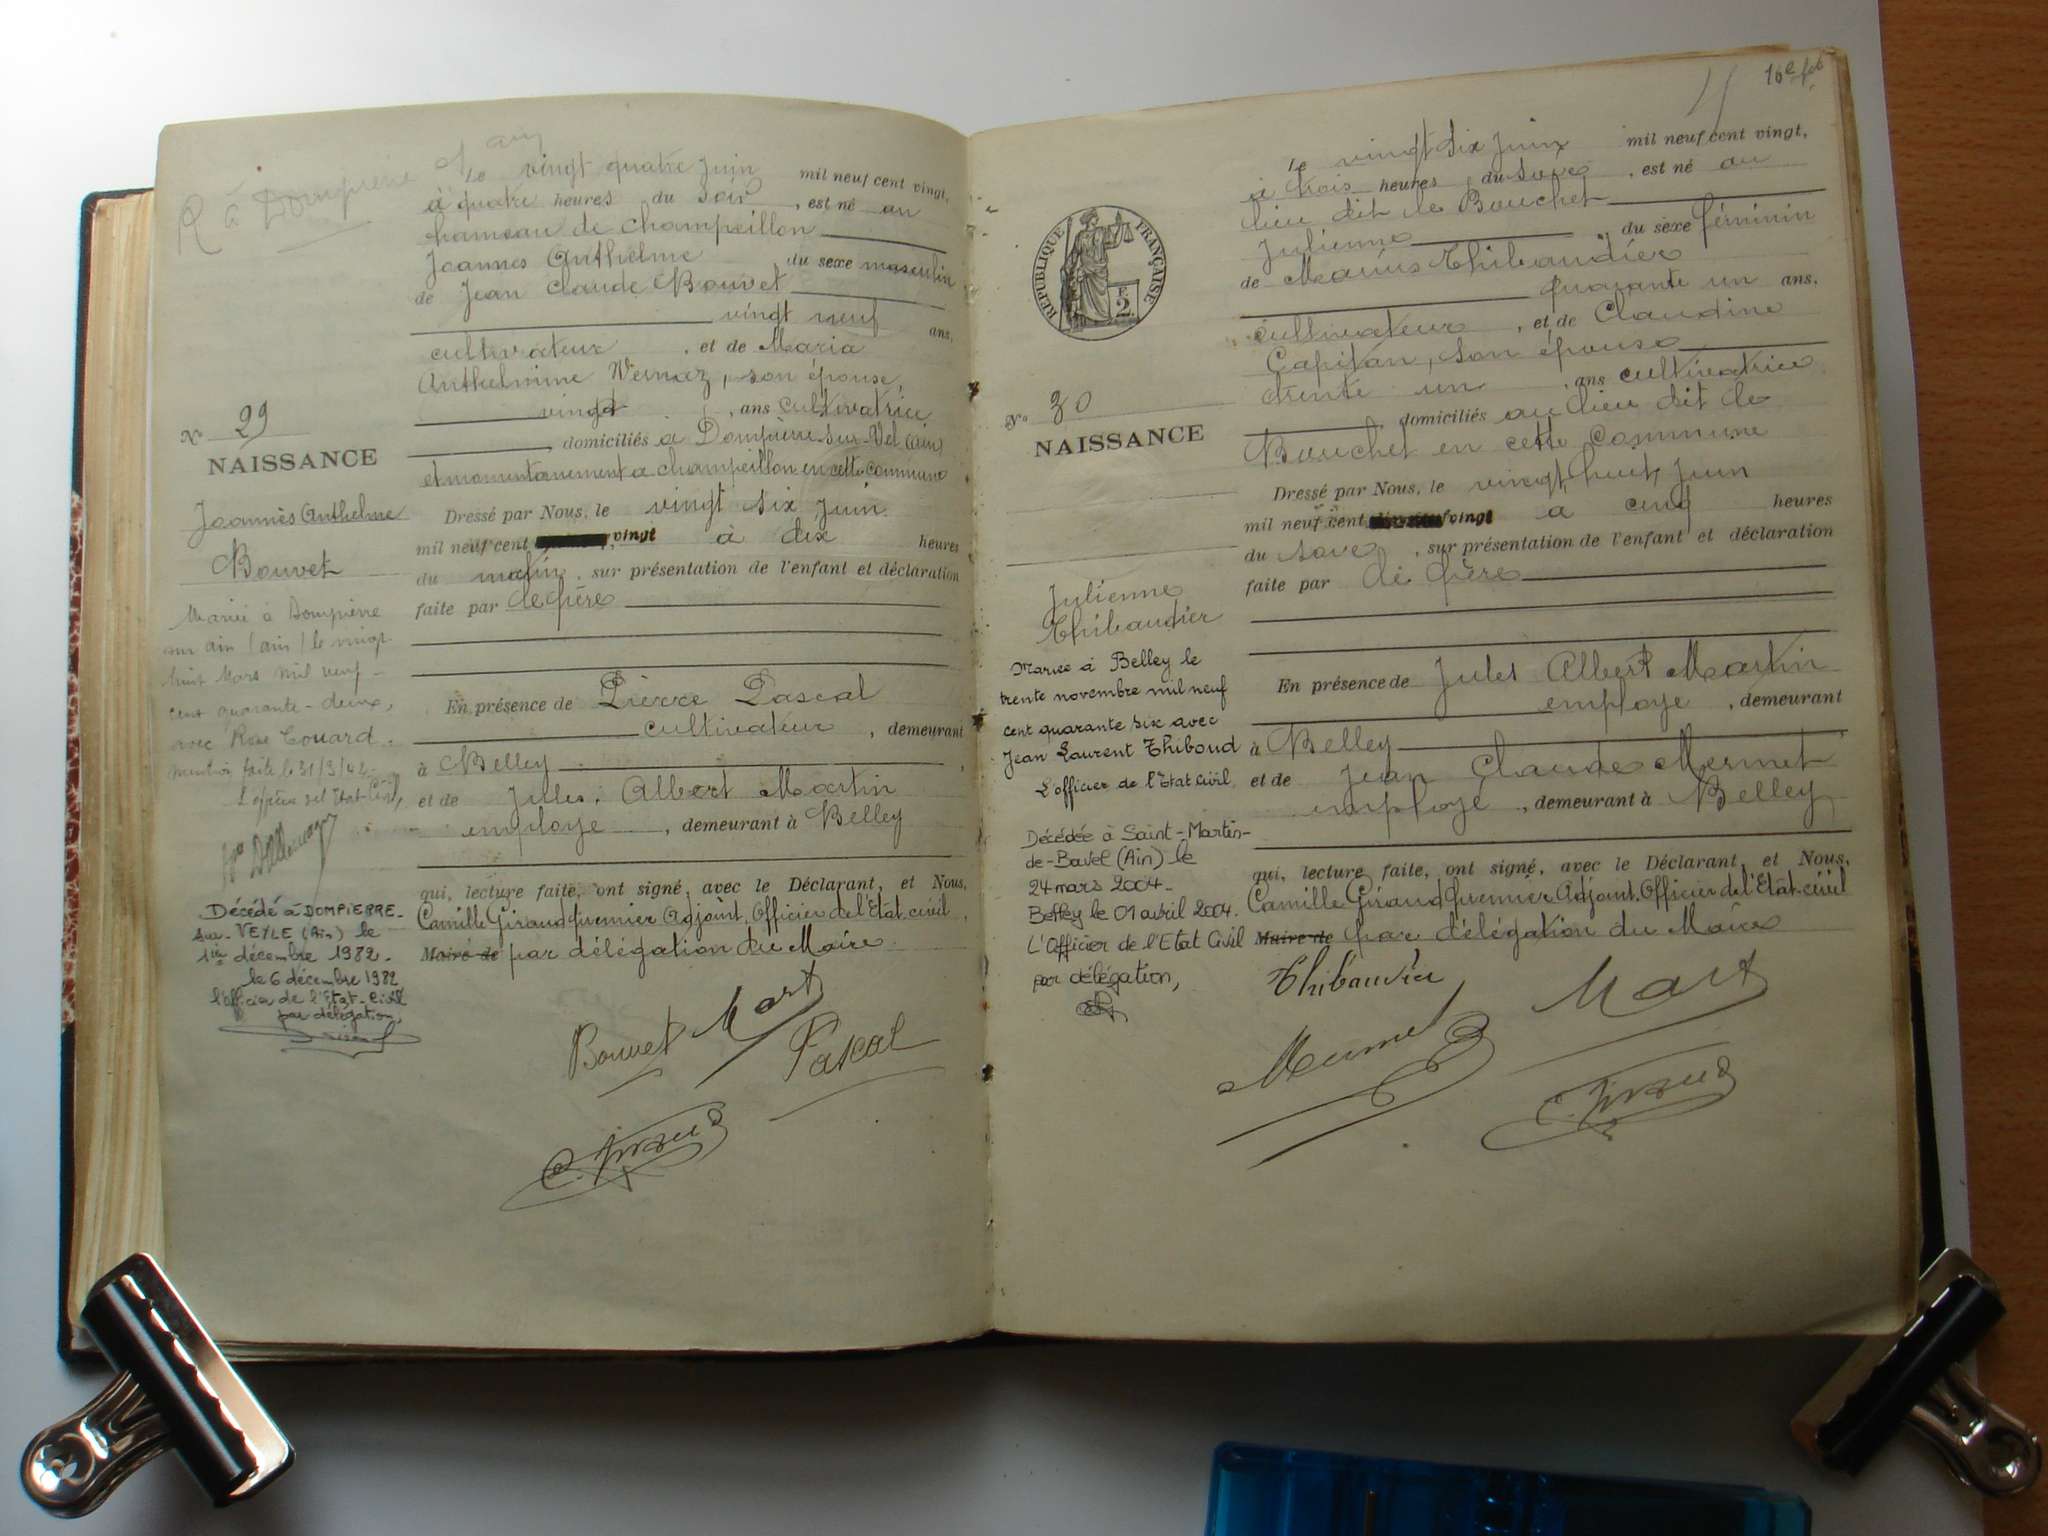 R à Dompierre s/ ain
Le vingt quatre juin mil neuf cent vingt,
à quatre heures du soir, est né au
hameau de Champeillon
Joannès Anthelme, du sexe masculin
de Jean Claude Bouvet
vingt neuf ans,
cultivateur, et de Maria
Anthelmine , son épouse,
vingt , ans cultivatrice
, domiciliés à Dompierre sur-Vel (ain)
et momentanement a champeillon en cette commune
N° 29
NAISSANCE
Joannès Anthelme
Bouvet
Dressé par Nous, le vingt six juin
mil neuf cent vingt à dix heures
du matin, sur présentation de l'enfant et déclaration
faite par le père
En présence de Pierre Pascal
cultivateur, demeurant
à Belley,
et de Jules, Albert Martin
employe, demeurant à Belley
qui, lecture faite, ont signé, avec le Déclarant, et Nous,
Camille Giraud premier Adjoint, Officier de l'Etat-civil,
Maire de par délégation du Maire
Marié à Dompierre
sur ain (ain) le vingt
huit Mars mil neuf-
cent quarante-deux,
avec Rose Couard.
mention faite le 31/3/42-
L'officier de l'Etat Civil,
Décédé à DOMPIERRE-
sur-VEYLE (Ain) le
1er décembre 1982.
le 6 décembre 1982
l'officier de l'Etat-Civil
par délégation,
Bouvet Mart
Pascal
C. Giraud
16e f
RÉPUBLIQUE FRANÇAISE
F.
2
Le vingt six juin mil neuf cent vingt,
à trois heures du soir, est né au
lieu dit le Bouchet
Julienne, du sexe féminin
de Marius Thibaudier
quarante un ans,
cultivateur, et de Claudine
Capitan, son épouse
trente un, ans cultivatrice
, domiciliés au lieu dit le
Bouchet en cette Commune
N° 30
NAISSANCE
Julienne
Thibaudier
Dressé par Nous, le vingt huit juin
mil neuf cent vingt à cinq heures
du soir, sur présentation de l'enfant et déclaration
faite par le père
En présence de Jules Albert Martin
employe, demeurant
à Belley
et de Jean Claude Mermet
employé, demeurant à Belley
qui, lecture faite, ont signé, avec le Déclarant, et Nous,
Camille Giraud premier Adjoint, Officier de l'Etat-civil
Maire de par délégation du Maire
Mariée à Belley le
trente novembre mil neuf
cent quarante six avec
Jean Laurent Thiboud
L'officier de l'Etat Civil,
Décédée à Saint-Martin-
de-Bavel (Ain) le
24 mars 2004-
Belley le 01 avril 2004.
L'Officier de l'Etat Civil
par délégation,
Thibaudier Mart
Mermet
C. Giraud